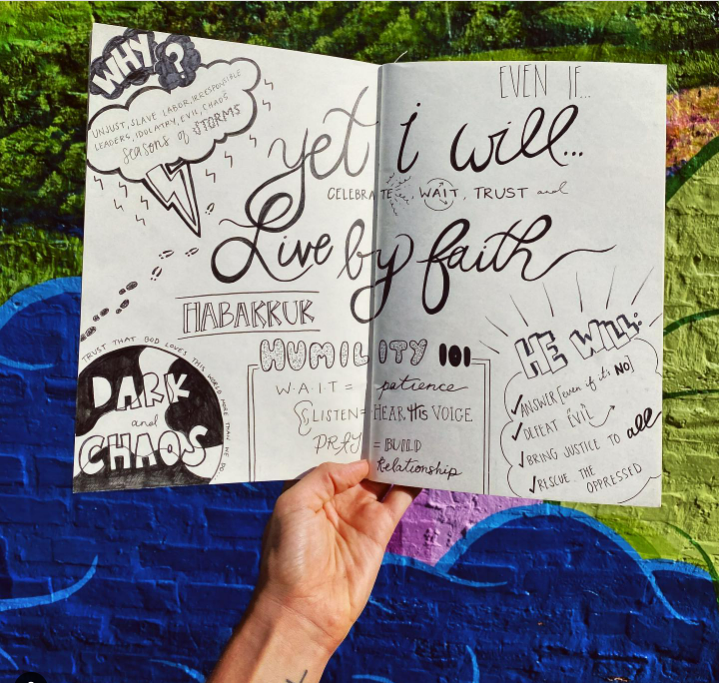 WHY?
UNJUST, SLAVE LABOR, IRRESPONSIBLE
LEADERS, IDOLATRY, EVIL, CHAOS
seasons of STORMS
EVEN IF...
yet i will...
CELEBRATE, WAIT, TRUST and
Live by faith
HABAKKUK
TRUST THAT GOD LOVES THIS WORLD MORE THAN WE DO
DARK
and
CHAOS
HUMILITY 101
WAIT = patience
LISTEN = HEAR His VOICE
PRAY = BUILD
Relationship
HE WILL:
✓ANSWER [even if it's NO]
✓DEFEAT "EVIL"
✓BRING JUSTICE TO all
✓RESCUE THE
OPPRESSED